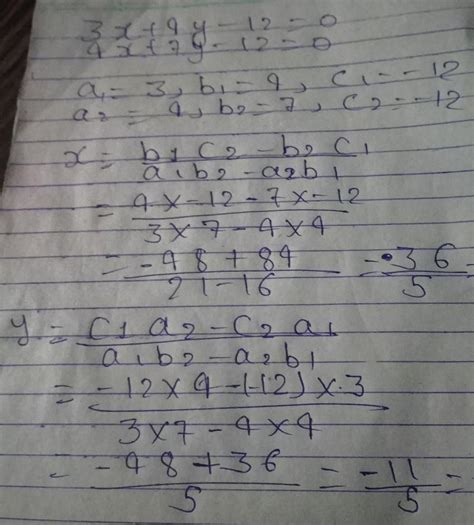 3x+4y-12=0
4x+7y-12=0
a₁= 3, b₁=4, c₁=-12
a₂= 4, b₂=7, c₂=-12
x= b₁c₂-b₂c₁ / a₁b₂-a₂b₁
= 4x-12-7x-12 / 3x7-4x4
= -48+84 / 21-16 = -36 / 5 =
y= c₁a₂-c₂a₁ / a₁b₂-a₂b₁
= -12x4-(-12)x3 / 3x7-4x4
= -48+36 / 5 = -11 / 5 =